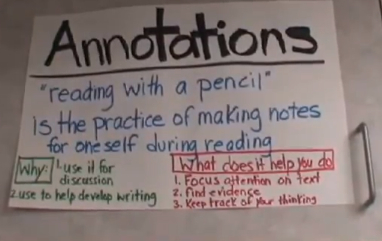 Annotations
"reading with a pencil"
is the practice of making notes
for oneself during reading
Why: 1. use it for
discussion
2. use to help develop writing
What does it help you do
1. Focus attention on text
2. find evidence
3. Keep track of your thinking